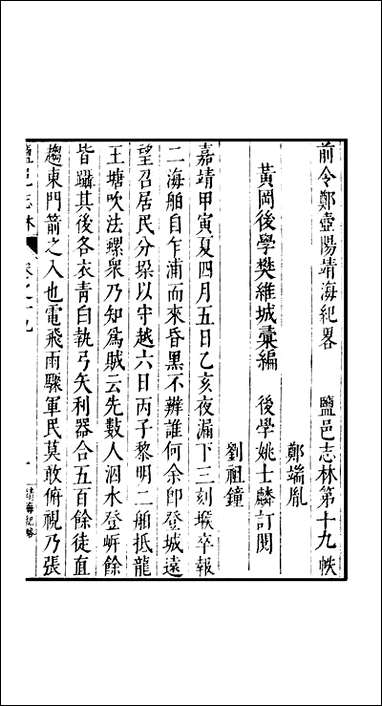 前令鄭壺陽靖海紀畧　鹽邑志林第十九帙
鄭端胤
黃岡後學樊維城彙編　後學姚士麟訂閱
劉祖鐘
嘉靖甲寅夏四月五日乙亥夜漏下三刻堠卒報
二海舶自乍浦而來昏黑不辨誰何余卽登城遠
望召居民分垜以守越六日丙子黎明二舶抵龍
王塘吹法螺衆乃知爲賊云先數人泅水登岍餘
皆躡其後各衣青白執弓矢利器合五百餘徒直
趨東門箭之入也電飛雨驟軍民莫敢俯視乃張
鹽邑志林　卷之十九　一　靖海紀畧